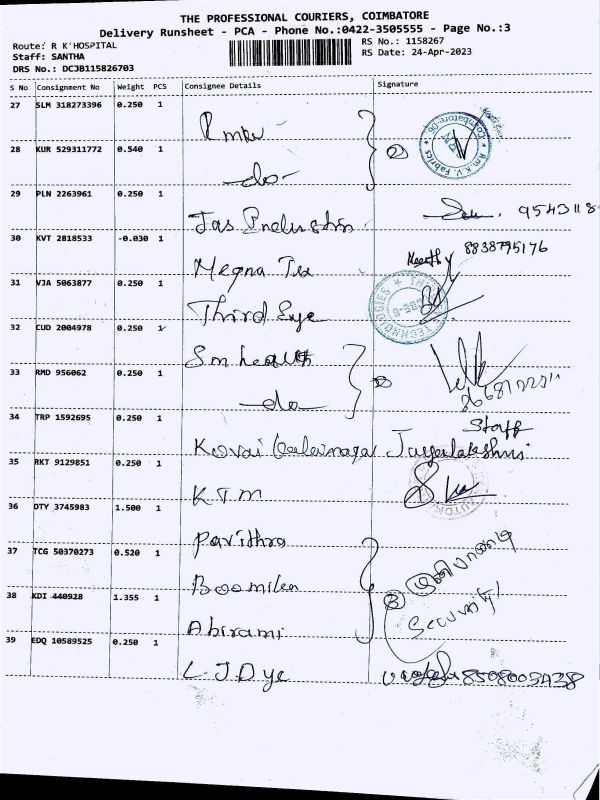 THE PROFESSIONAL COURIERS, COIMBATORE
Delivery Runsheet - PCA - Phone No.:0422-3505555 - Page No.:3
Route: R K HOSPITAL
RS No.: 1158267
Staff: SANTHA
RS Date: 24-Apr-2023
DRS No.: DCJB115826703
S No Consignment No Weight PCS Consignee Details Signature
27 SLM 318273396 0.250 1
R.M.K.V. Fabrics Coimbatore-
28 KUR 529311772 0.540 1 2
-do-
29 PLN 2263961 0.250 1
Jas 9543118
30 KVT 2818533 -0.030 1 8838795176
Megna Tex Keerthy
31 VJA 5063877 0.250 1
Third Eye TECHNOLOGIES
32 CUD 2004978 0.250 1
Sm health
33 RMD 956062 0.250 1 2
-do-
34 TRP 1592695 0.250 1 Staff
Kovai Jayalakshmi
35 RKT 9129851 0.250 1
KTM
36 DTY 3745983 1.500 1
Pavithra
37 TCG 50370273 0.520 1
Boomika
38 KDI 440928 1.355 1 3 Security
Abirami
39 EDQ 10589525 0.250 1
L J Dye 8508003438